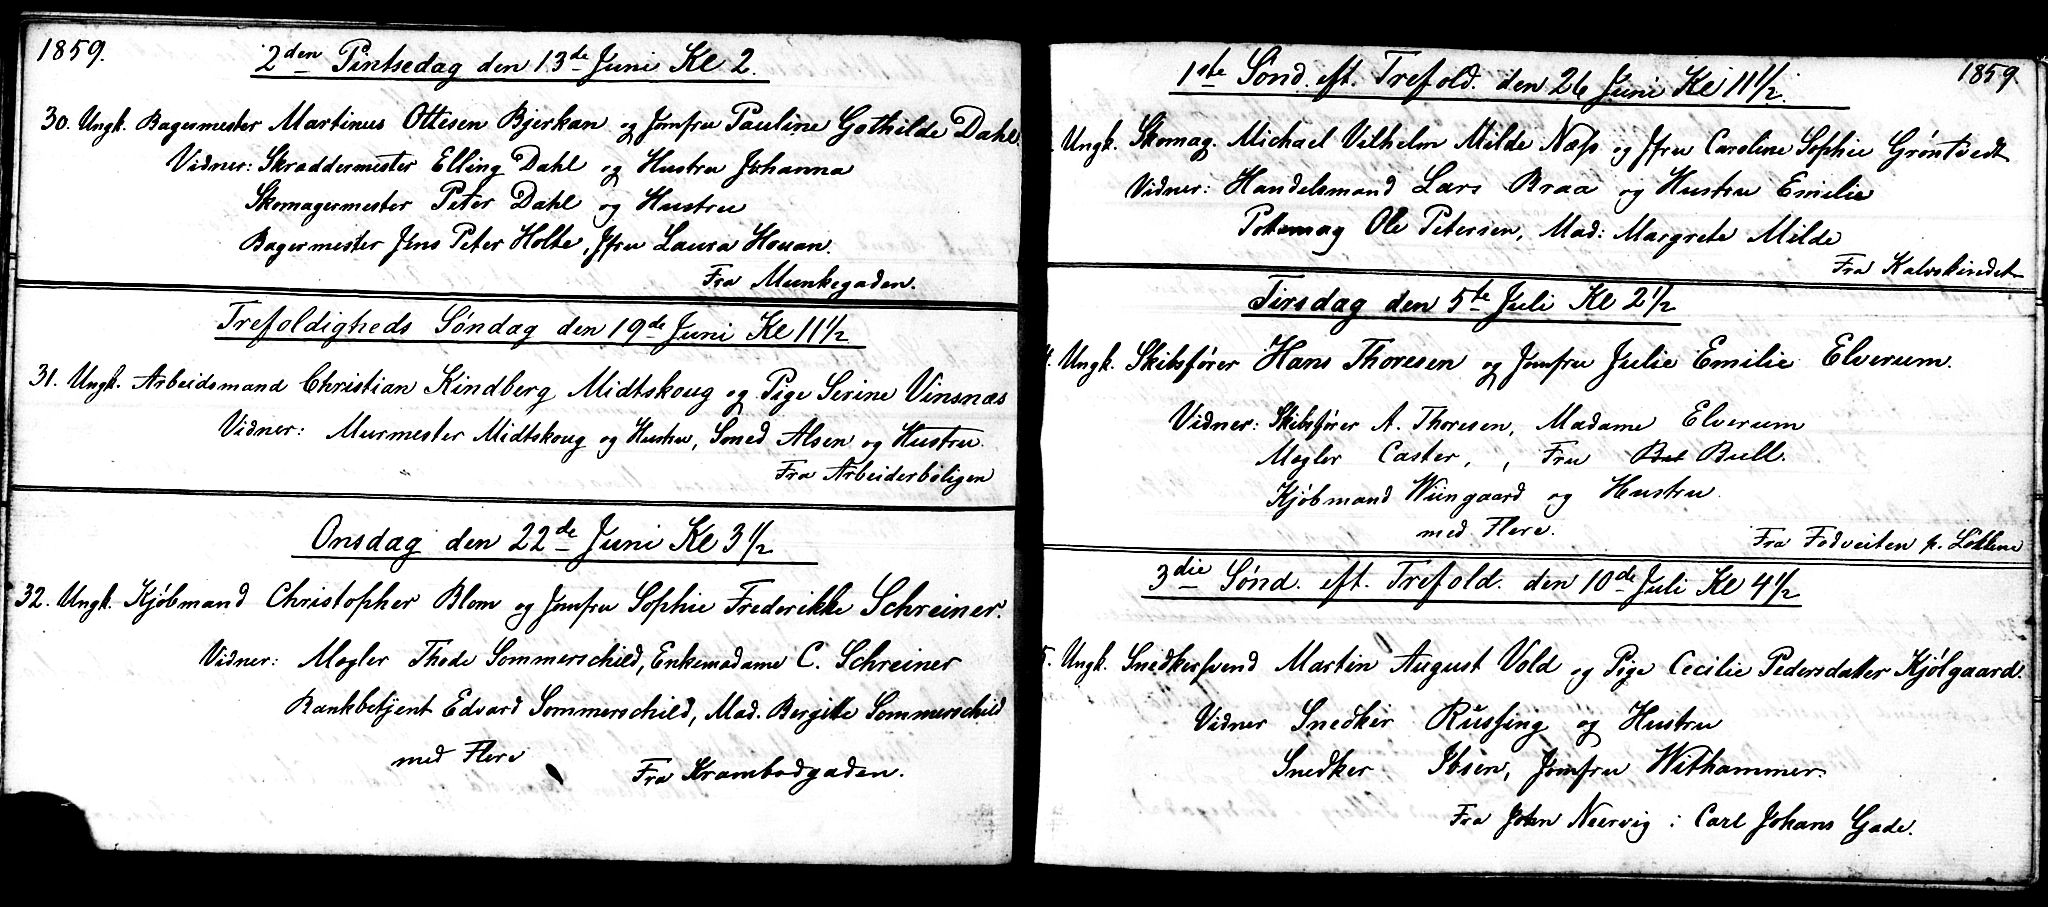 1859.
2den Pintsedag den 13de Juni Kl 2.
30. Ungk. Bagermester Martinus Ottesen Bjerkan og Jomfru Pauline Gothilde Dahl.
Vidner: Skraddermester Elling Dahl og Hustru Johanna
Skomagermester Peter Dahl og Hustru
Bagermester Jens Peter Holte, Jfru Laura Houan.
Fra Munkegaden.
Trefoldigheds Søndag den 19de Juni Kl 11½
31. Ungk. Arbeidsmand Christian Kindberg Midtskoug og Pige Serine Vinsnæs
Vidner: Murmester Midtskoug og Hustru, Smed Alsen og Hustru.
Fra Arbeiderboligen
Onsdag den 22de Juni Kl 3½
32. Ungk. Kjøbmand Christopher Blom og Jomfru Sophie Frederikke Schreiner.
Vidner: Mægler Thode Sommerschild, Enkemadame C. Schreiner
Bankbetjent Edvard Sommerschild, Mad. Bergitte Sommerschild
med Flere
Fra Krambodgaden.
1859.
1ste Sønd. eft. Trefold. den 26 Juni Kl 11½.
Ungk. Skomag. Michael Vilhelm Milde Næss og Jfru Caroline Sophie Grøntvedt
Vidner: Handelsmand Lars Braa og Hustru Emilie
Pottemag Ole Petersen, Mad: Margrete Milde
Fra Kalvskindet
Tirsdag den 5te Juli Kl 2½
Ungk. Skibsfører Hans Thoresen og Jomfru Julie Emilie Elverum.
Vidner: Skibsfører A. Thoresen, Madame Elverum
Mægler Caster, , Fru Bull.
Kjøbmand Wiingaard og Hustru.
med Flere.
Fra Fedveiten p. Løkkene
3die Sønd. eft. Trefold. den 10de Juli Kl 4½
5. Ungk. Snedkersvend Martin August Vold og Pige Cecilie Pedersdatter Kjølgaard.
Vidner Snedker Rusfing og Hustru
Snedker Ibsen, Jomfru Withammer.
Fra John Neervig i Carl Johans Gade.